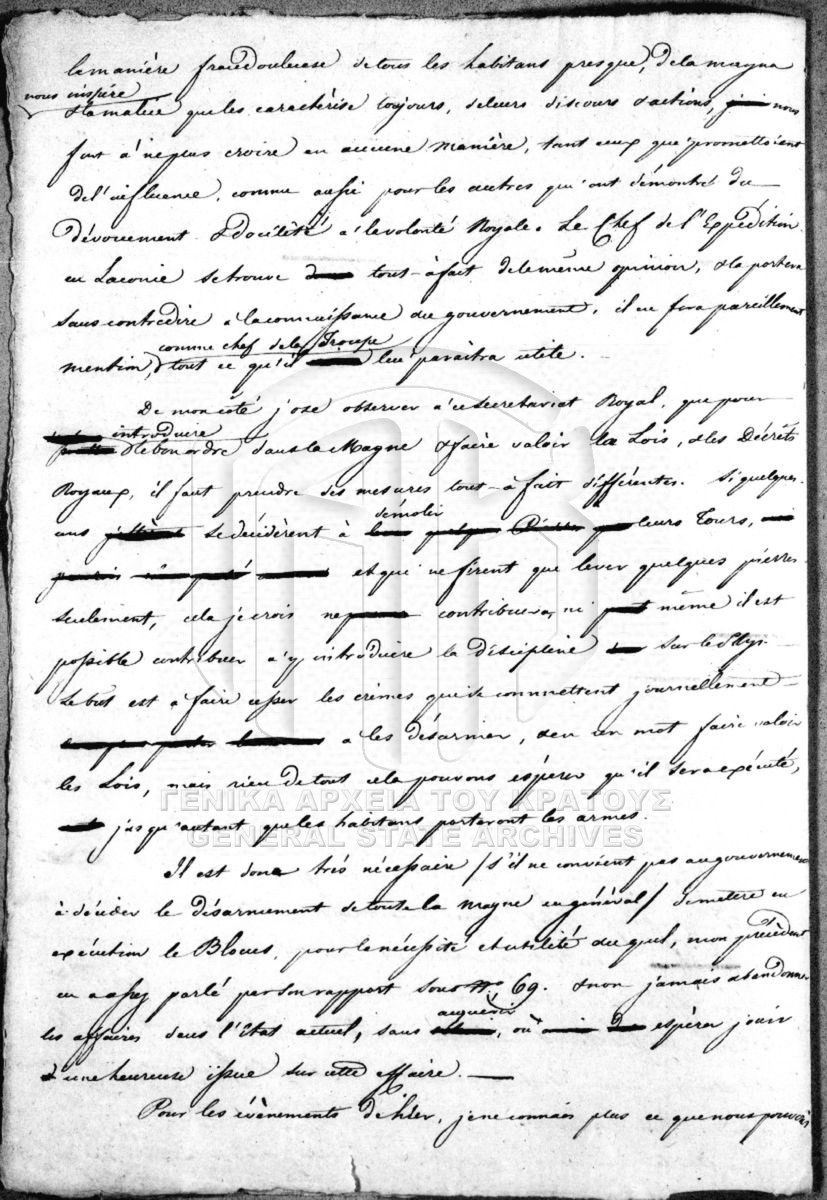 la manière fraudouleuse de tous les habitans presque, de la mayna
nous inspire
& la malice que les caractèrise toujours, de leurs discours & actions, nous
fout à ne plus croire en aucune manière, tant ceux que promettoient
de l'influence, comme aussi pour les autres qui ont démontré du
dévouement & docileté à la volonté Royale. Le Chef de l'Expédition
en Laconie se trouve tout-à fait de la même opinion, & la portera
sans contredire à la connaissance du gouvernement, il en fera pareillement
comme chef de la Troupe
mention, & tout ce qu'il leu paraitra utile.
De mon coté j'ose observer à ce secretariat Royal, que pour
introduire
le bon ordre dans la Magne & faire valoir la Lois, & les Décrèts
Royaux, il faut prendre des mesures tout-à fait différentes. Si quelques
démolir
uns se décidèrent à leurs Tours,
et qui ne firent que lever quelques pierres
seulement, cela je crois ne contribuera, ni même il est
possible contribuer à y introduire la déscipline sur le Pays.
Le but est à faire cesser les crimes qui se commettent journellement
à les désarmer, & en un mot faire valoir
les Lois, mais rien de tout cela pouvons espérer qu'il sera exécuté,
jusqu'autant que les habitans porteront les armes.
Il est donc trés nécessaire /s'il ne convient pas au gouvernement
à décider le désarmement de toute la mayne en général/ de mettre en
exécution le Blocus, pour la nécessité et utilité du quel, mon précèdent
en a assez parlé par son rapport sous No 69. & non jamais abandonner
acquérir
les affaires dans l'état actuel, sans, où espérer jouir
d'une heureuse issue sur cette affaire. —
Pour les évènements d'hier, je ne connais plus ce que nous pouvons
ΓΕΝΙΚΑ ΑΡΧΕΙΑ ΤΟΥ ΚΡΑΤΟΥΣ
GENERAL STATE ARCHIVES